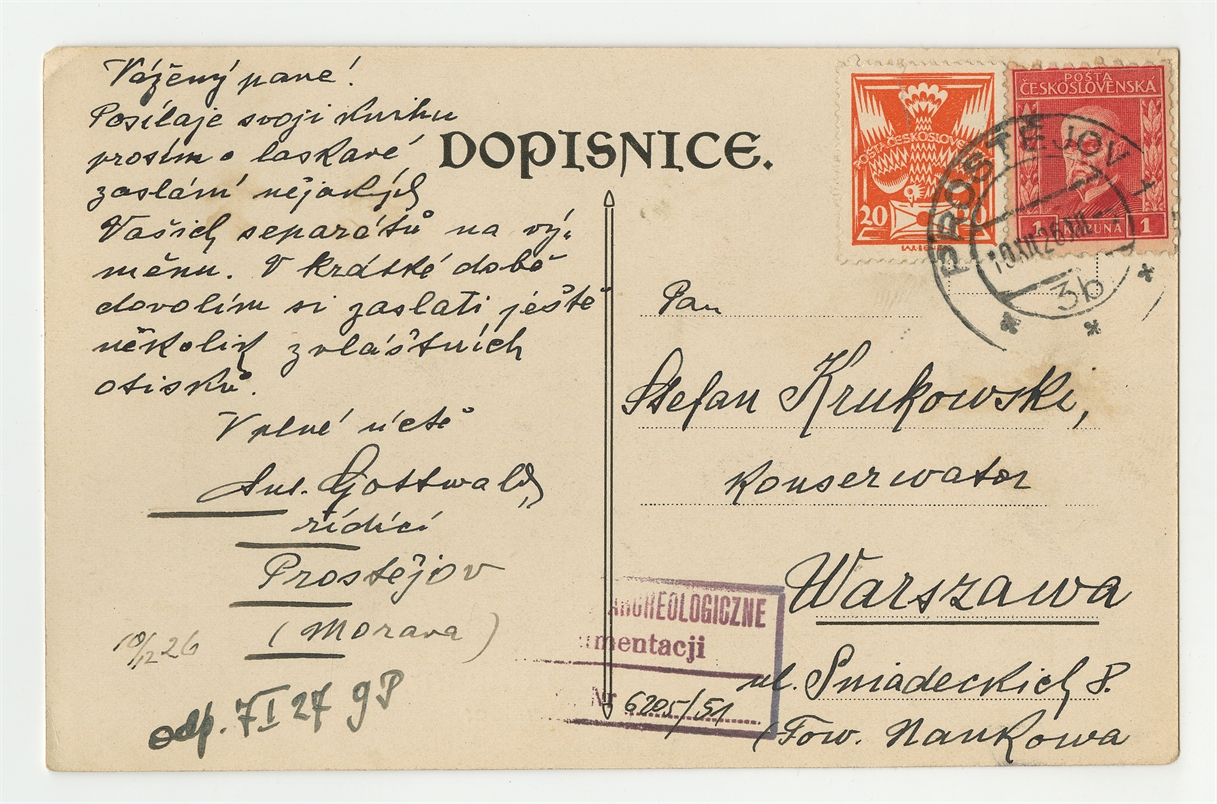 Vážený pane!
Posílaje svoji knihu
prosím o laskavé
zaslání nějakých
Vašich separátů na vý-
měnu. V krátké době
dovolím si zaslati ještě
několik zvláštních
otisků.
V plné úctě
Ant. Gottwald,
řídící
Prostějov
(Morava)
10/12 26
odp. 7 I 27
DOPISNICE.
POŠTA ČESKOSLOVENSKÁ
20
POŠTA
ČESKOSLOVENSKÁ
1
PROSTĚJOV 1
10.XII.26
3b
Pan
Stefan Krukowski,
Konserwator
Warszawa
ul. Śniadeckich 8.
(Tow. Naukowa
ARCHEOLOGICZNE
mentacji
Nr 6205/51